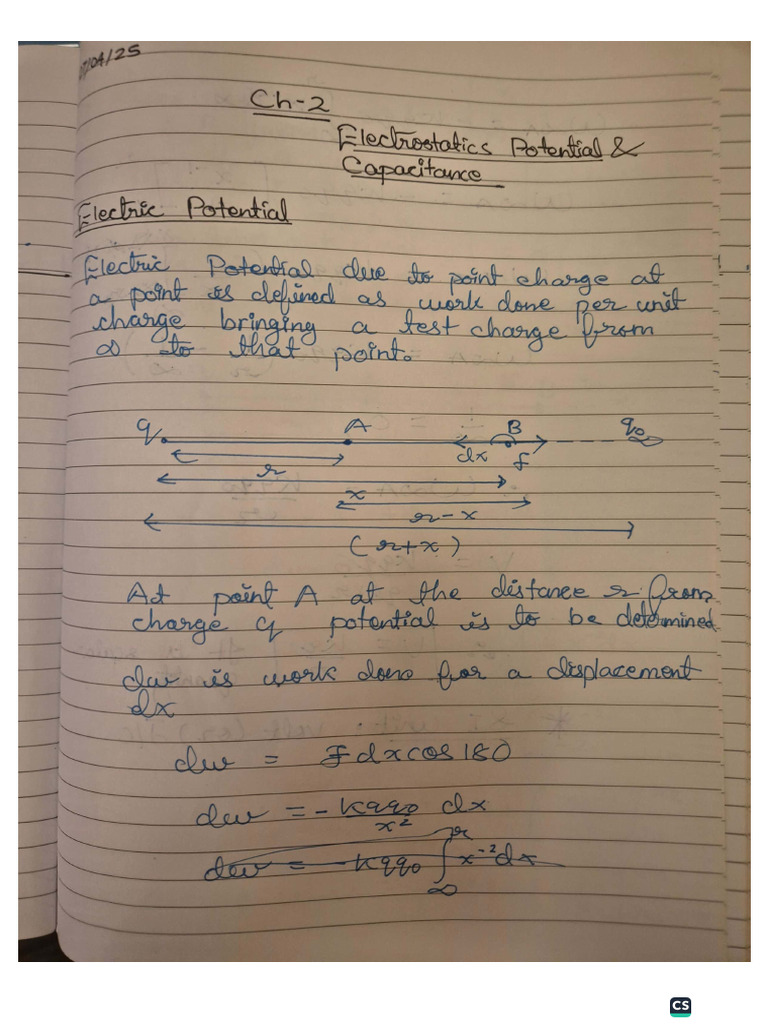 07/04/25
Ch-2
Electrostatics Potential &
Capacitance
Electric Potential
Electric Potential due to point charge at
a point is defined as work done per unit
charge bringing a test charge from
∞ to that point.
q A B q₀
dx f
r
x
r-x
(r+x)
At point A at the distance r from
charge q potential is to be determined
dw is work done for a displacement
dx
dw = F dx cos 180
dw = - kqq₀/x² dx
dw = - kqq₀ ∫_∞^r x⁻² dx
CS